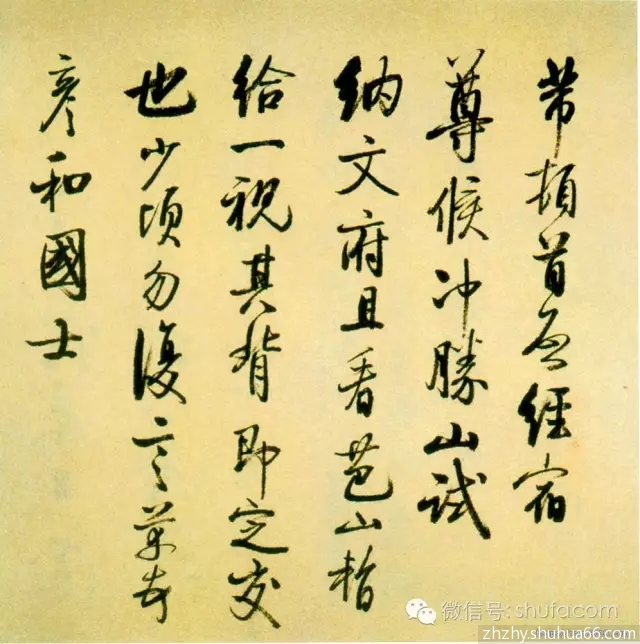 芾頓首經宿
尊候冲勝山試
納文府且看芭山暫
給一視其背即定交
也少頃勿復言芾
彦和國士
微信号: shufacom
zhzhy.shuhua66.com